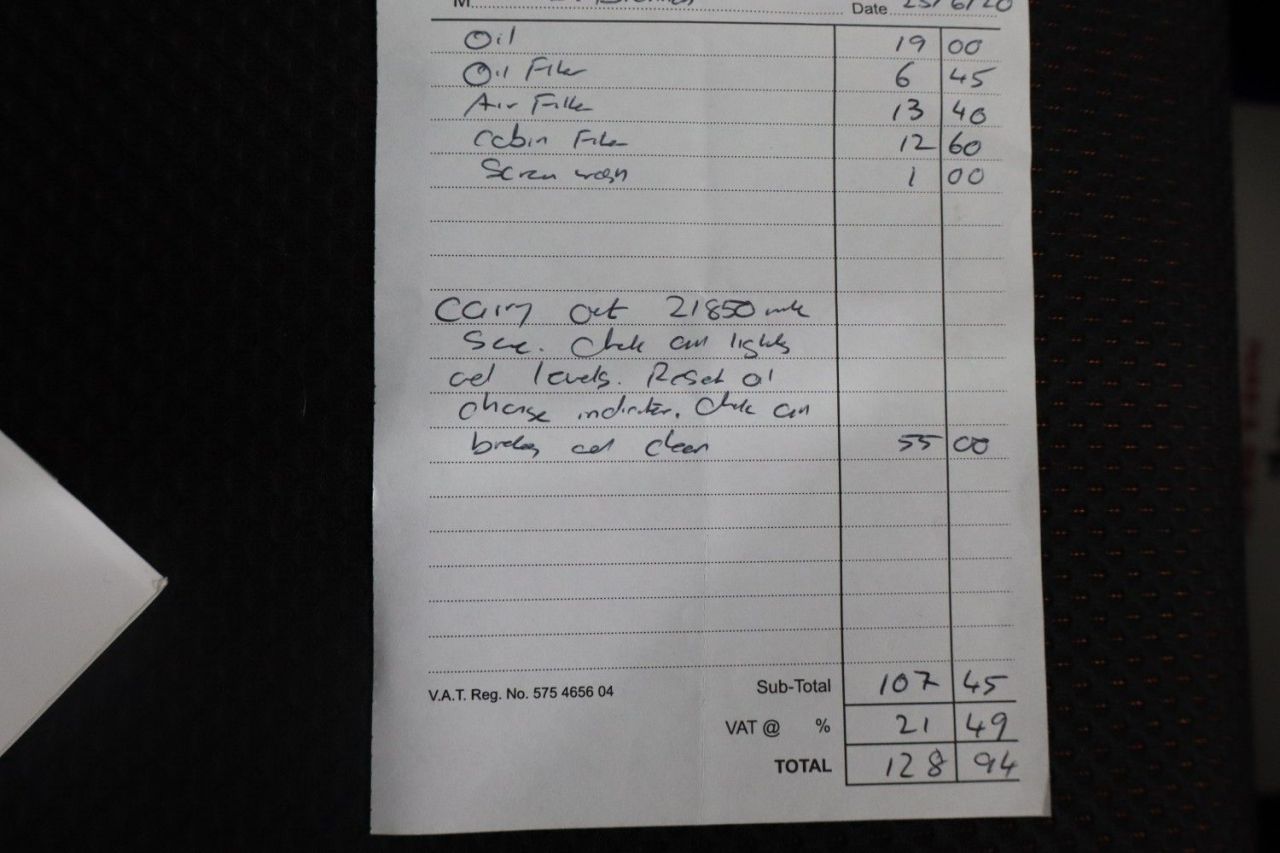 M. Date 25/6/20
Oil 19 00
Oil Filter 6 45
Air Filter 13 40
Cabin Filter 12 60
Screen wash 1 00
Carry out 21850 mile
Service. Check all lights
and levels. Reset oil
change indicator. Check all
brakes and clean 55 00
V.A.T. Reg. No. 575 4656 04 Sub-Total 107 45
VAT @ % 21 49
TOTAL 128 94